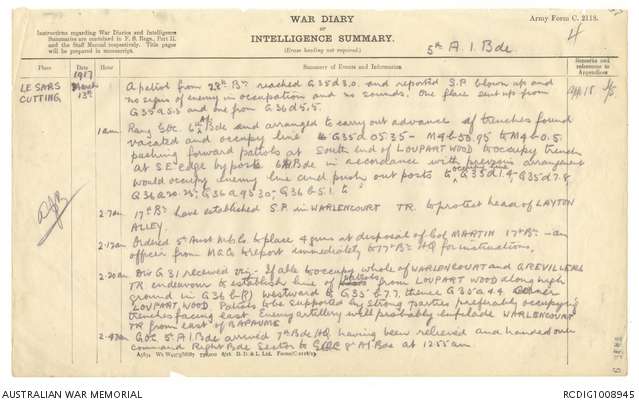 WAR DIARY
OF
INTELLIGENCE SUMMARY.
(Erase heading not required.)
Army Form C. 2118.
4
Instructions regarding War Diaries and Intelligence
Summaries are contained in F. S. Regs., Part II.
and the Staff Manual respectively. Title pages
will be prepared in manuscript.
5th A. I. Bde.
Place
Date
Hour
Summary of Events and Information
Remarks and
references to
Appendices
LE SARS
CUTTING
1917
March
13th
A patrol from 28th Bn reached G35d3.0. and reported S.P. blown up and
no signs of enemy in occupation and no sounds. One flare sent up from
G35a5.3 and one from G36d5.5.
App 18
1 am
Rang GOC. 6th AI Bde and arranged to carry out advance if trenches found
vacated and occupy line G35d05.35 - M4b
pushing forward patrols at South end of LOUPART WOOD to occupy trenches
at S.E edge by posts 6 AI Bde in accordance with previous arrangement
would occupy enemy line and push out posts to G35d1.9 - G35d7.8
G36a20.25; G36a95.30; G36b5.1.
2-7am
17th Bn have established S.P. in WARLENCOURT TR. to protect head of LAYTON
ALLEY.
2-12am
Ordered 5th Aust M.G. Co. to place 4 guns at disposal of Col MARTIN 17th Bn - an
officer from M.G. Co to report immediately to 17th Bn HQ for instructions.
2-20am
Div G 31 received viz:- If able to occupy whole of WARLENCOURT and GREVILLERS
TR endeavour to establish line of patrols from LOUPART WOOD along high
ground in G36b(?) westward to G35b7.7. thence G35a4.4
LOUPART WOOD Patrols to be supported by strong parties preferably occupying
trenches facing east. Enemy artillery will probably enfilade WARLENCOURT
TR from east of BAPAUME
2-47am
GOC 5th AI Bde arrived 7th Bde HQ having been relieved and handed over
command Right Bde Sector to GOC 8 AI Bde at 1255am
D. D. & L. Ltd.
AUSTRALIAN WAR MEMORIAL
RCDIG1008945